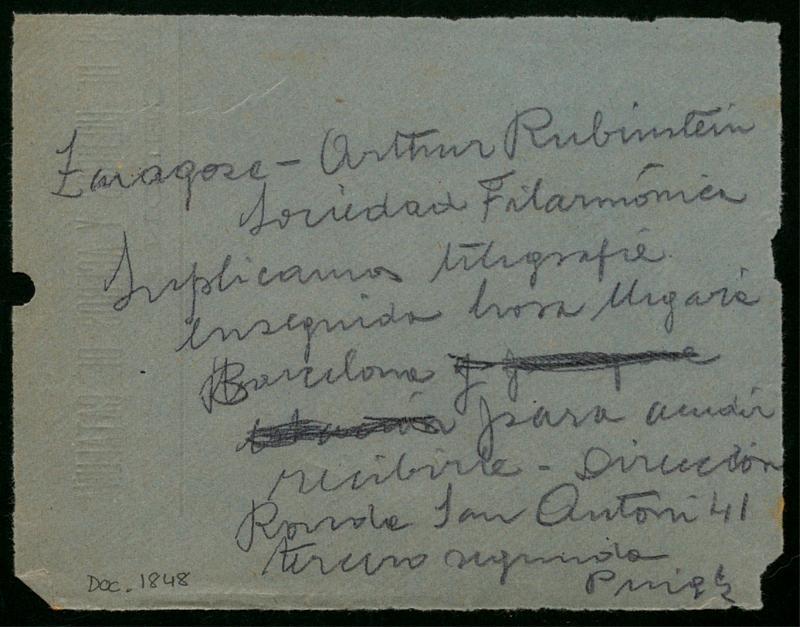 Zaragoza - Arthur Rubinstein
Sociedad Filarmónica
Suplicamos telegrafíe
enseguida hora llegará
Barcelona y
para acudir
recibirle - Dirección
Ronda San Antoni 41
tercero segunda
Puig
Doc. 1848